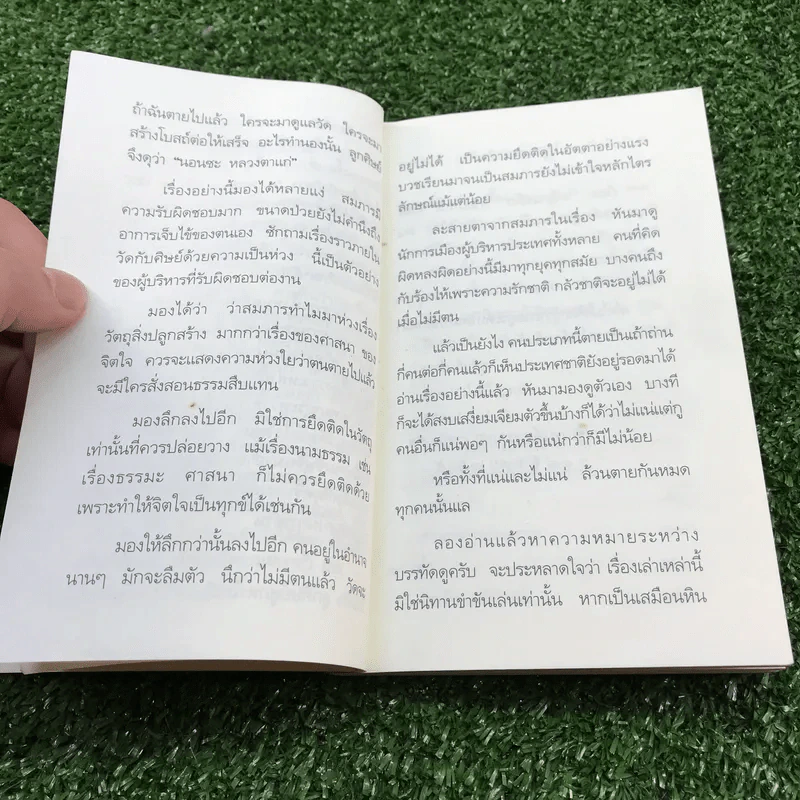 ถ้าฉันตายไปแล้ว ใครจะมาดูแลวัด ใครจะมา
สร้างโบสถ์ต่อให้เสร็จ อะไรทำนองนั้น ลูกศิษย์
จึงดุว่า “นอนซะ หลวงตาแก่”
เรื่องอย่างนี้มองได้หลายแง่ สมภารมี
ความรับผิดชอบมาก ขนาดป่วยยังไม่คำนึงถึง
อาการเจ็บไข้ของตนเอง ซักถามเรื่องราวภายใน
วัดกับศิษย์ด้วยความเป็นห่วง นี้เป็นตัวอย่าง
ของผู้บริหารที่รับผิดชอบต่องาน
มองได้ว่า ว่าสมภารทำไมมาห่วงเรื่อง
วัตถุสิ่งปลูกสร้าง มากกว่าเรื่องของศาสนา ของ
จิตใจ ควรจะแสดงความห่วงใยว่าตนตายไปแล้ว
จะมีใครสั่งสอนธรรมสืบแทน
มองลึกลงไปอีก มิใช่การยึดติดในวัตถุ
เท่านั้นที่ควรปล่อยวาง แม้เรื่องนามธรรม เช่น
เรื่องธรรมะ ศาสนา ก็ไม่ควรยึดติดด้วย
เพราะทำให้จิตใจเป็นทุกข์ได้เช่นกัน
มองให้ลึกกว่านั้นลงไปอีก คนอยู่ในอำนาจ
นานๆ มักจะลืมตัว นึกว่าไม่มีตนแล้ว วัดจะ
อยู่ไม่ได้ เป็นความยึดติดในอัตตาอย่างแรง
บวชเรียนมาจนเป็นสมภารยังไม่เข้าใจหลักไตร
ลักษณ์แม้แต่น้อย
ละสายตาจากสมภารในเรื่อง หันมาดู
นักการเมืองผู้บริหารประเทศทั้งหลาย คนที่คิด
ผิดหลงผิดอย่างนี้มีมาทุกยุคทุกสมัย บางคนถึง
กับร้องไห้เพราะความรักชาติ กลัวชาติจะอยู่ไม่ได้
เมื่อไม่มีตน
แล้วเป็นยังไง คนประเภทนี้ตายเป็นเถ้าถ่าน
กี่คนต่อกี่คนแล้วก็เห็นประเทศชาติยังอยู่รอดมาได้
อ่านเรื่องอย่างนี้แล้ว หันมามองดูตัวเอง บางที
ก็จะได้สงบเสงี่ยมเจียมตัวขึ้นบ้างก็ได้ว่าไม่แน่แต่กู
คนอื่นก็แน่พอๆ กันหรือแน่กว่าก็มีไม่น้อย
หรือทั้งที่แน่และไม่แน่ ล้วนตายกันหมด
ทุกคนนั้นแล
ลองอ่านแล้วหาความหมายระหว่าง
บรรทัดดูครับ จะประหลาดใจว่า เรื่องเล่าเหล่านี้
มิใช่นิทานขำขันเล่นเท่านั้น หากเป็นเสมือนหิน